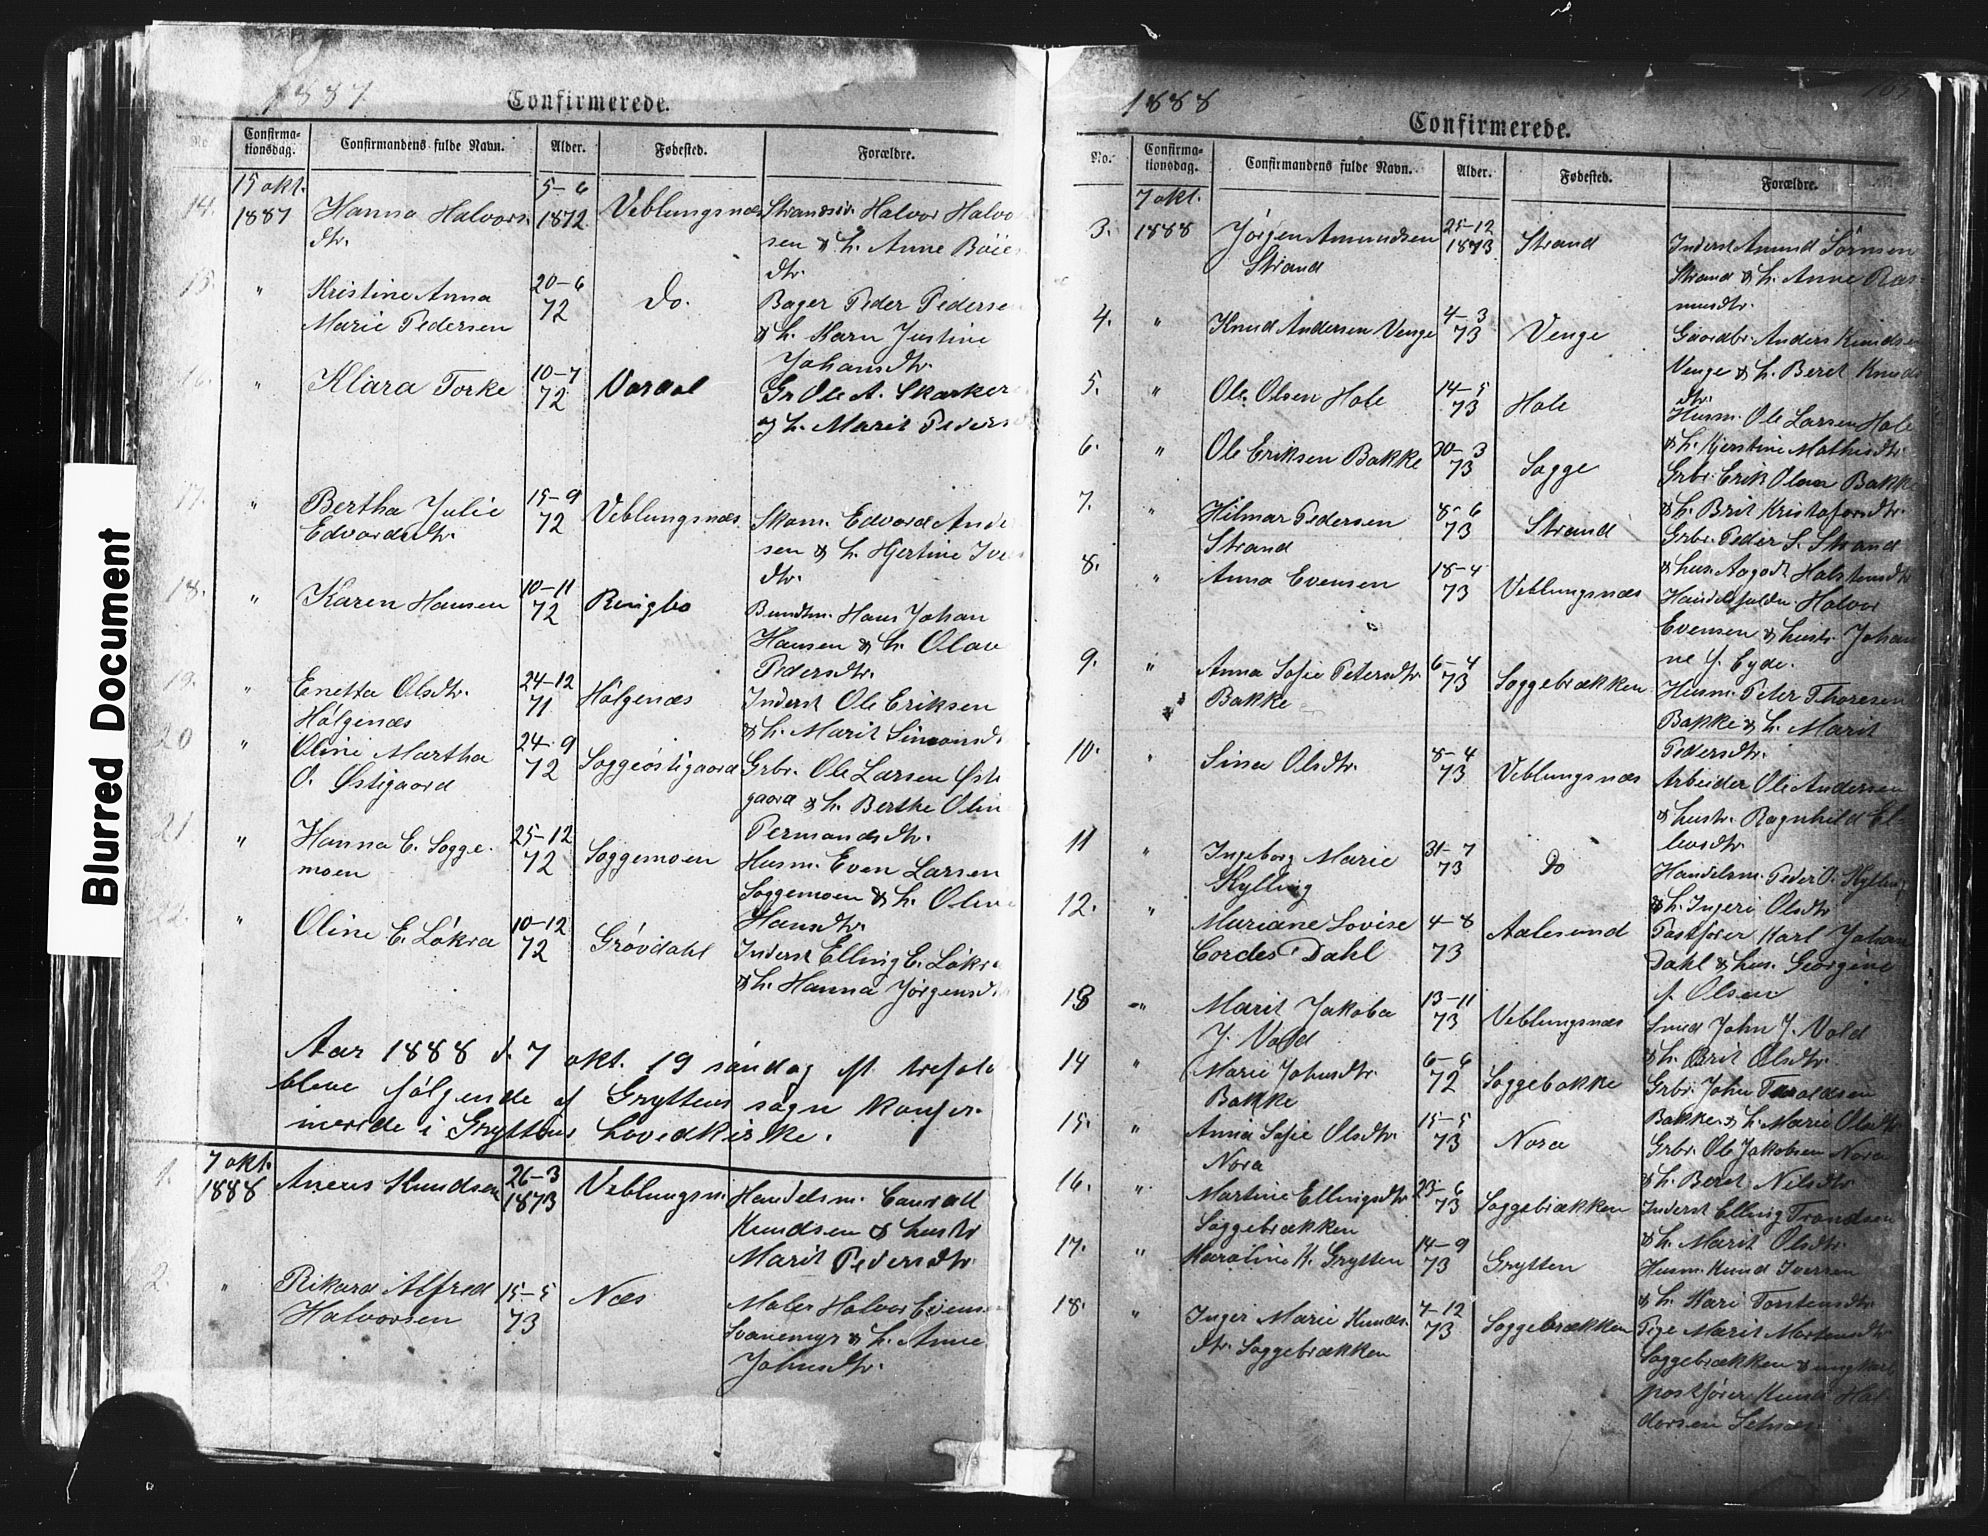 Blurred Document
1887
Confirmerede.
No
Confirma-
tionsdag.
Confirmandens fulde Navn.
Alder.
Fødested.
Forældre.
14. 15 okt. 1887
Hanna Halvors-
dtr.
5-6
1872
Veblungsnæs
Strandsid. Halvor Halvo
sen & h. Anne Böies
dtr.
15. "
Kristine Anna
Marie Pedersen
20-6
72
Do.
Bager Peder Pederse
& h. Karn Justine
Johansdtr.
16. "
Klara Torke
10-7
72
Gr Ole A. Skarker
og h. Marit Peders
17. "
Bertha Julie
Edvardsdtr.
15-9
72
Veblungsnæs
Skom. Edvard Ande
sen & h. Hjertine Ive
dtr.
18. "
Karen Hansen
10-11
72
Ringbo
Bundtm. Hans Johan
Hansen & h. Olav
Pedersdtr.
19. "
Enetta Olsdtr.
Hølgenæs
24-12
71
Hølgenæs
Inderst Ole Eriksen
& h. Marit Simonsd
20 "
Oline Martha
O. Østigaard
24-9
72
Soggeöstigaard
Grbr. Ole Larsen Øst
gaard & h. Berthe Olin
21. "
Hanna E. Sogge-
moen
25-12
72
Soggemoen
Husm. Even Larsen
Soggemoen & h. Oline
Hansdtr.
22. "
Oline E. Løkra
10-12
72
Grøvdahl
Inderst Elling E. Løkr
& h. Hanna Jørgensd
Aar 1888 d. 7 okt. 19 søndag ef. trefold
bleve følgende af Gryttens sogn konfir-
merede i Gryttens hovedkirke.
1. 7 okt. 1888
Aneus Knudsen
26-3
1873
Veblungsn.
Handelsm. Conrad
Knudsen & hustr
Marit Pedersdtr.
2. "
Rikard Alfred
Halvorsen
15-5
73
Næs
Maler Halvor Evens
Svanemyr & h. Anne
Johnsdtr.
1888
Confirmerede.
No.
Confirma-
tionsdag.
Confirmandens fulde Navn.
Alder.
Fødested.
Forældre.
3. 7 okt. 1888
Jørgen Amundsen
Strand
25-12
1873
Strand
Inderst Amund Sörnsen
Strand & h. Anne Ras-
musdtr.
4. "
Knud Andersen Venge
4-3
73
Venge
Gaardbr. Anders Knudsen
Venge & h. Beret Knuds
dtr.
5. "
Ole Olsen Hole
14-5
73
Hole
Husm. Ole Larsen Hole
& h. Kjerstine Mathisdtr.
6. "
Ole Eriksen Bakke
30-3
73
Sogge
Grbr. Erik Olsen Bakke
& h. Brit Kristofersdtr.
7. "
Hilmar Pedersen
Strand
8-6
73
Strand
Grbr. Peder S. Strand
& hus. Aagodt Halstensdtr
8. "
Anna Evensen
18-4
73
Veblungsnæs
Halvor
Evensen & hustr. Johan
ne f. Eyde.
9. "
Anna Sofie Petersdtr.
Bakke
6-4
73
Soggebrækken
Husm. Peter Thoresen
Bakke & h. Marit
Pedersdtr.
10. "
Sina Olsdtr.
8-4
73
Veblungsnæs
Arbeider Ole Andersen
& hustr. Ragnhild El
levsdtr.
11 "
Ingeborg Marie
Kylling
31-7
73
Do
Handelsm. Peder O. Kylling
& h. Ingeri Olsdtr.
12. "
Mariane Lovise
Cordes Dahl
4-8
73
Aalesund
Postfører Karl Johan
Dahl & hus. Georgine
f. Olsen
13 "
Marit Jakoba
J. Vold
13-11
73
Veblungsnæs
Smed John J. Vold
& h. Brit Olsdtr.
14 "
Marie Johnsdtr.
Bakke
6-6
72
Soggebakke
Grbr. John Taraldsen
Bakke & h. Marie Olsdtr.
15. "
Anna Sofie Olsdtr.
Nora
15-5
73
Nora
Grbr. Ole Jakobsen Nora
& h. Beret Nilsdtr.
16. "
Martine Ellingsdtr.
Soggebrækken
23-6
73
Soggebrækken
Inderst Elling Trondsen
& h. Marit Olsdtr.
17. "
Karoline K. Grytten
14-9
73
Grytten
Husm. Knud Iversen
& h. Kari Torstensdtr.
18. "
Inger Marie Knuds-
dtr. Soggebrækken
7-12
73
Soggebrækken
Pige Marit Mortensdtr.
Soggebrækken & ungkarl
postfører Knud Hal
dorsen